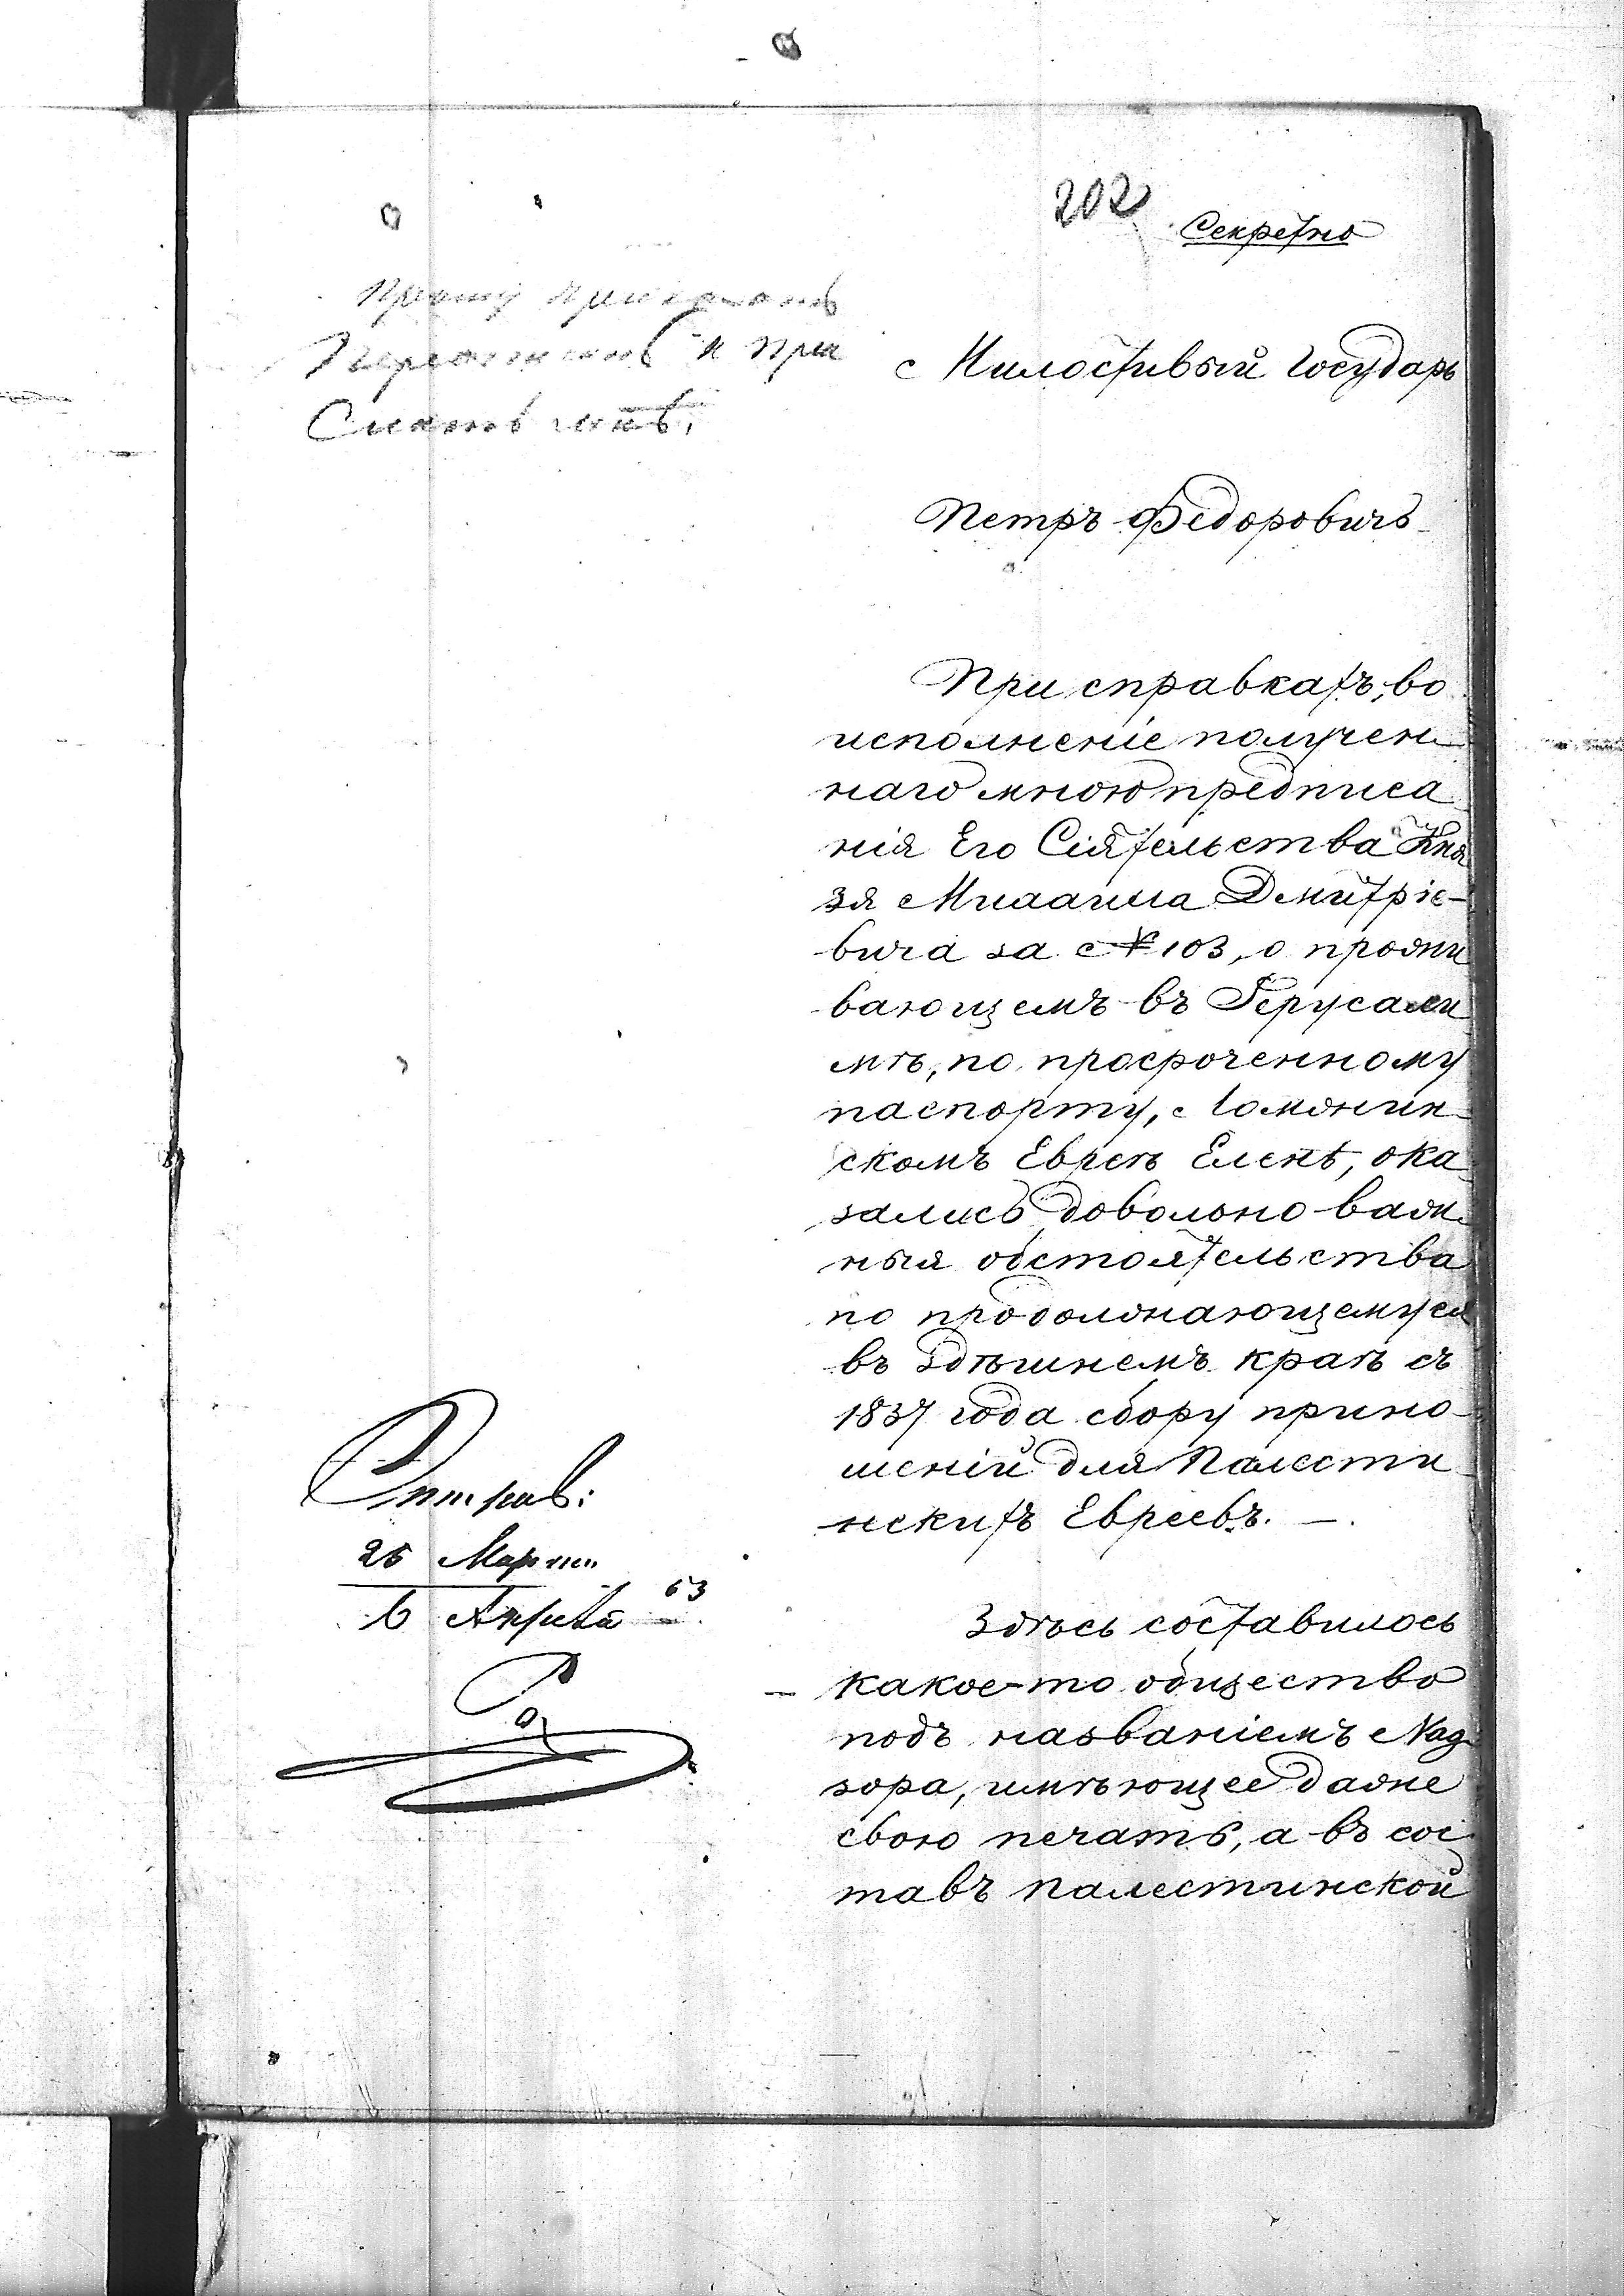 202
Секретно
Прошу
и при
Милостивый Государь
Петръ Федоровичъ
При справкахъ, во
исполненіе получен
наго мною предписа
нія Его Сіятельства Кня
зя Михаила Дмитріе-
вича за № 103, о прожи
вающемъ въ Іерусали
мѣ, по просроченному
паспорту, Ломжин
скомъ Евреѣ Еленѣ, ока
зались довольно важ
ныя обстоятельства
по продолжающемуся
въ здѣшнемъ краѣ съ
1837 года сбору прино-
шеній для Палести
нскихъ Евреевъ. —
Здѣсь составилось
какое-то общество
подъ названіемъ Над
зора, имѣющее даже
свою печать, а въ сос
тавъ Палестинской
Отправ:
25 Марта
6 Апрѣля 63